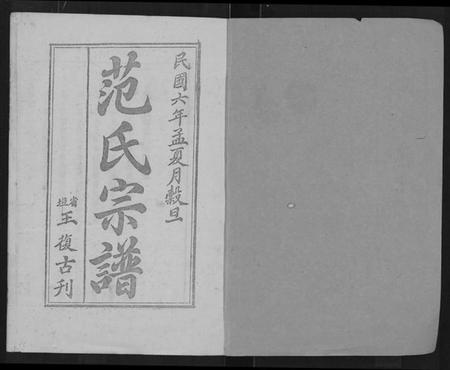 民國六年孟夏月穀旦
范氏宗譜
省垣王復古刋